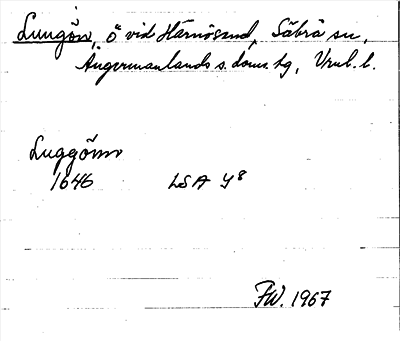 Lungön, ö vid Härnösand, Säbrå sn,
Ångermanlands s. doms. tg, Vnl. l.
Luggönn
1646 LSA Y8
FW. 1967